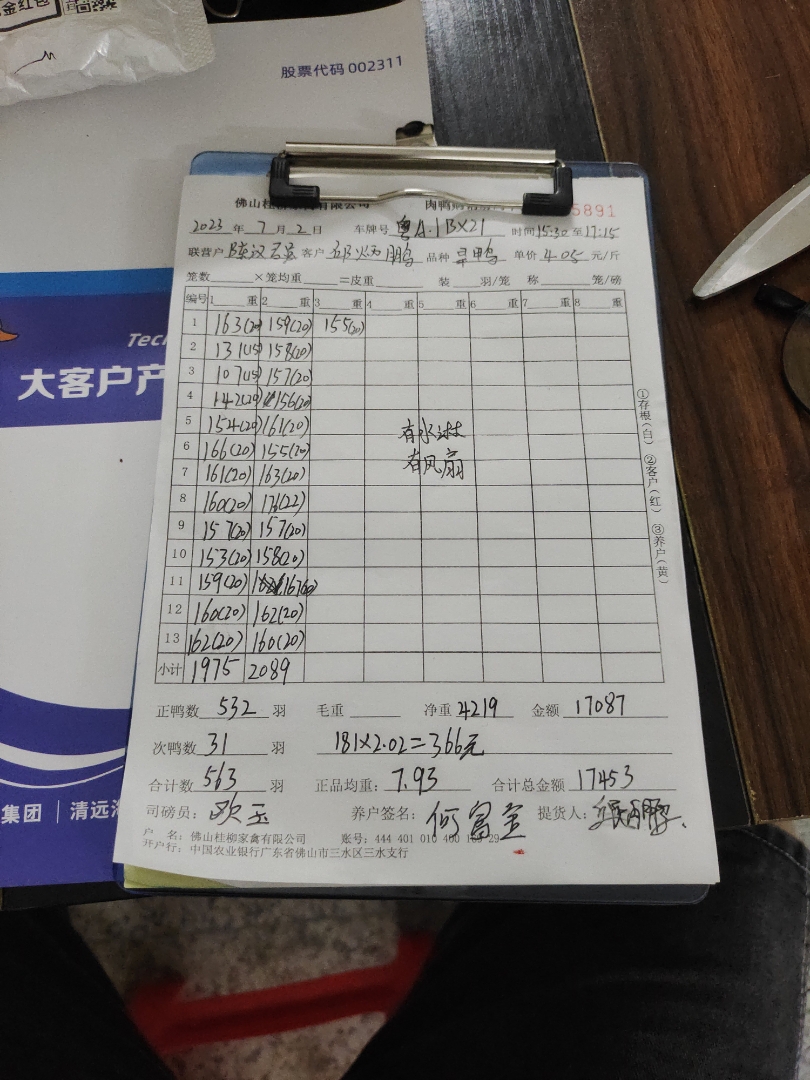 金红包
股票代码 002311
5891
2023 年 7 月 2 日 车牌号 粤A.1BX21 时间 15:30 至 17:15
联营户 客户 品种 旱鸭 单价 4.05 元/斤
笼数 ×笼均重 =皮重 装 羽/笼 称 笼/磅
编号 1 重 2 重 3 重 4 重 5 重 6 重 7 重 8 重
1 163(20) 159(20) 155(20)
2 131(15) 158(20)
3 107(15) 157(20)
4 142(20) 156(20)
5 154(20) 161(20)
6 166(20) 155(20)
7 161(20) 163(20)
8 160(20) 176(22)
9 157(20) 157(20)
10 153(20) 158(20)
11 159(20) 167(20)
12 160(20) 162(20)
13 162(20) 160(20)
小计 1975 2089
有水淋
有风扇
①存根(白) ②客户(红) ③养户(黄)
正鸭数 532 羽 毛重 净重 4219 金额 17087
次鸭数 31 羽 181×2.02=366元
合计数 563 羽 正品均重: 7.93 合计总金额 17453
司磅员: 欧玉 养户签名: 何富全 提货人:
户 名: 佛山桂柳家禽有限公司 账号: 444 401 010 400
开户行: 中国农业银行广东省佛山市三水区三水支行
Tec
大客户产
集团 | 清远